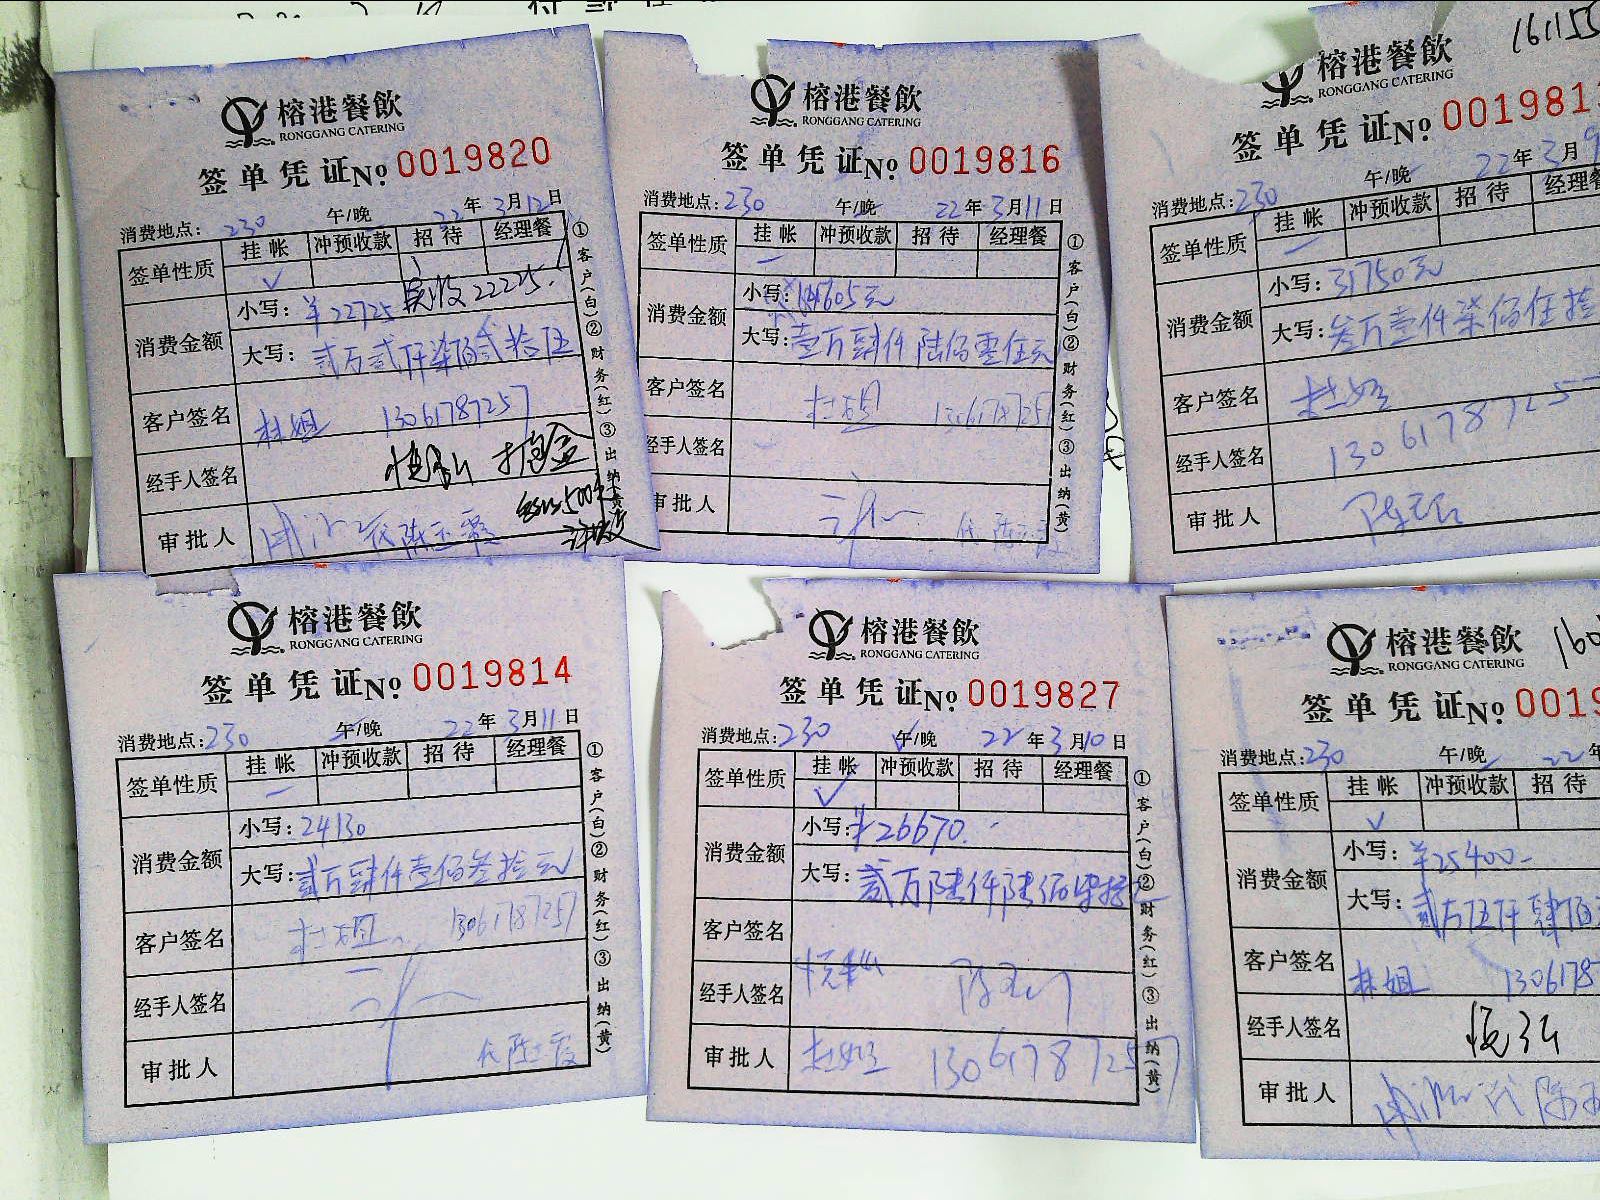 榕港餐飲
RONGGANG CATERING
签单凭证No. 0019820
消费地点: 230 午/晚 22年3月12日
签单性质 挂帐 冲预收款 招待 经理餐
消费金额 小写: ¥22725 实收22225.
大写: 贰万贰仟柒佰贰拾伍
客户签名 林姐 13061787257
经手人签名
审批人 代陈玉霞
①客户(白)②财务(红)③出纳(黄)
榕港餐飲
RONGGANG CATERING
签单凭证No. 0019816
消费地点: 230 午/晚 22年3月11日
签单性质 挂帐 冲预收款 招待 经理餐
消费金额 小写: 14605元
大写: 壹万肆仟陆佰零伍元
客户签名 杜姐 1306178725
经手人签名
审批人
①客户(白)②财务(红)③出纳(黄)
161155
榕港餐飲
RONGGANG CATERING
签单凭证No. 001981
消费地点: 230 午/晚 22年3月9
签单性质 挂帐 冲预收款 招待 经理餐
消费金额 小写: 31750元
大写: 叁万壹仟柒佰伍拾
客户签名 杜姐
经手人签名 13061787257
审批人
榕港餐飲
RONGGANG CATERING
签单凭证No. 0019814
消费地点: 230 午/晚 22年3月11日
签单性质 挂帐 冲预收款 招待 经理餐
消费金额 小写: 24130
大写: 贰万肆仟壹佰叁拾元
客户签名 杜姐 13061787257
经手人签名
审批人 代陈玉霞
①客户(白)②财务(红)③出纳(黄)
榕港餐飲
RONGGANG CATERING
签单凭证No. 0019827
消费地点: 230 午/晚 22年3月10日
签单性质 挂帐 冲预收款 招待 经理餐
消费金额 小写: ¥26670.
大写: 贰万陆仟陆佰柒拾
客户签名
经手人签名
审批人 杜姐 13061787257
①客户(白)②财务(红)③出纳(黄)
160
榕港餐飲
RONGGANG CATERING
签单凭证No. 0019
消费地点: 230 午/晚 22年
签单性质 挂帐 冲预收款 招待
消费金额 小写: ¥25400-
大写: 贰万伍仟肆佰
客户签名 林姐 1306178
经手人签名
审批人